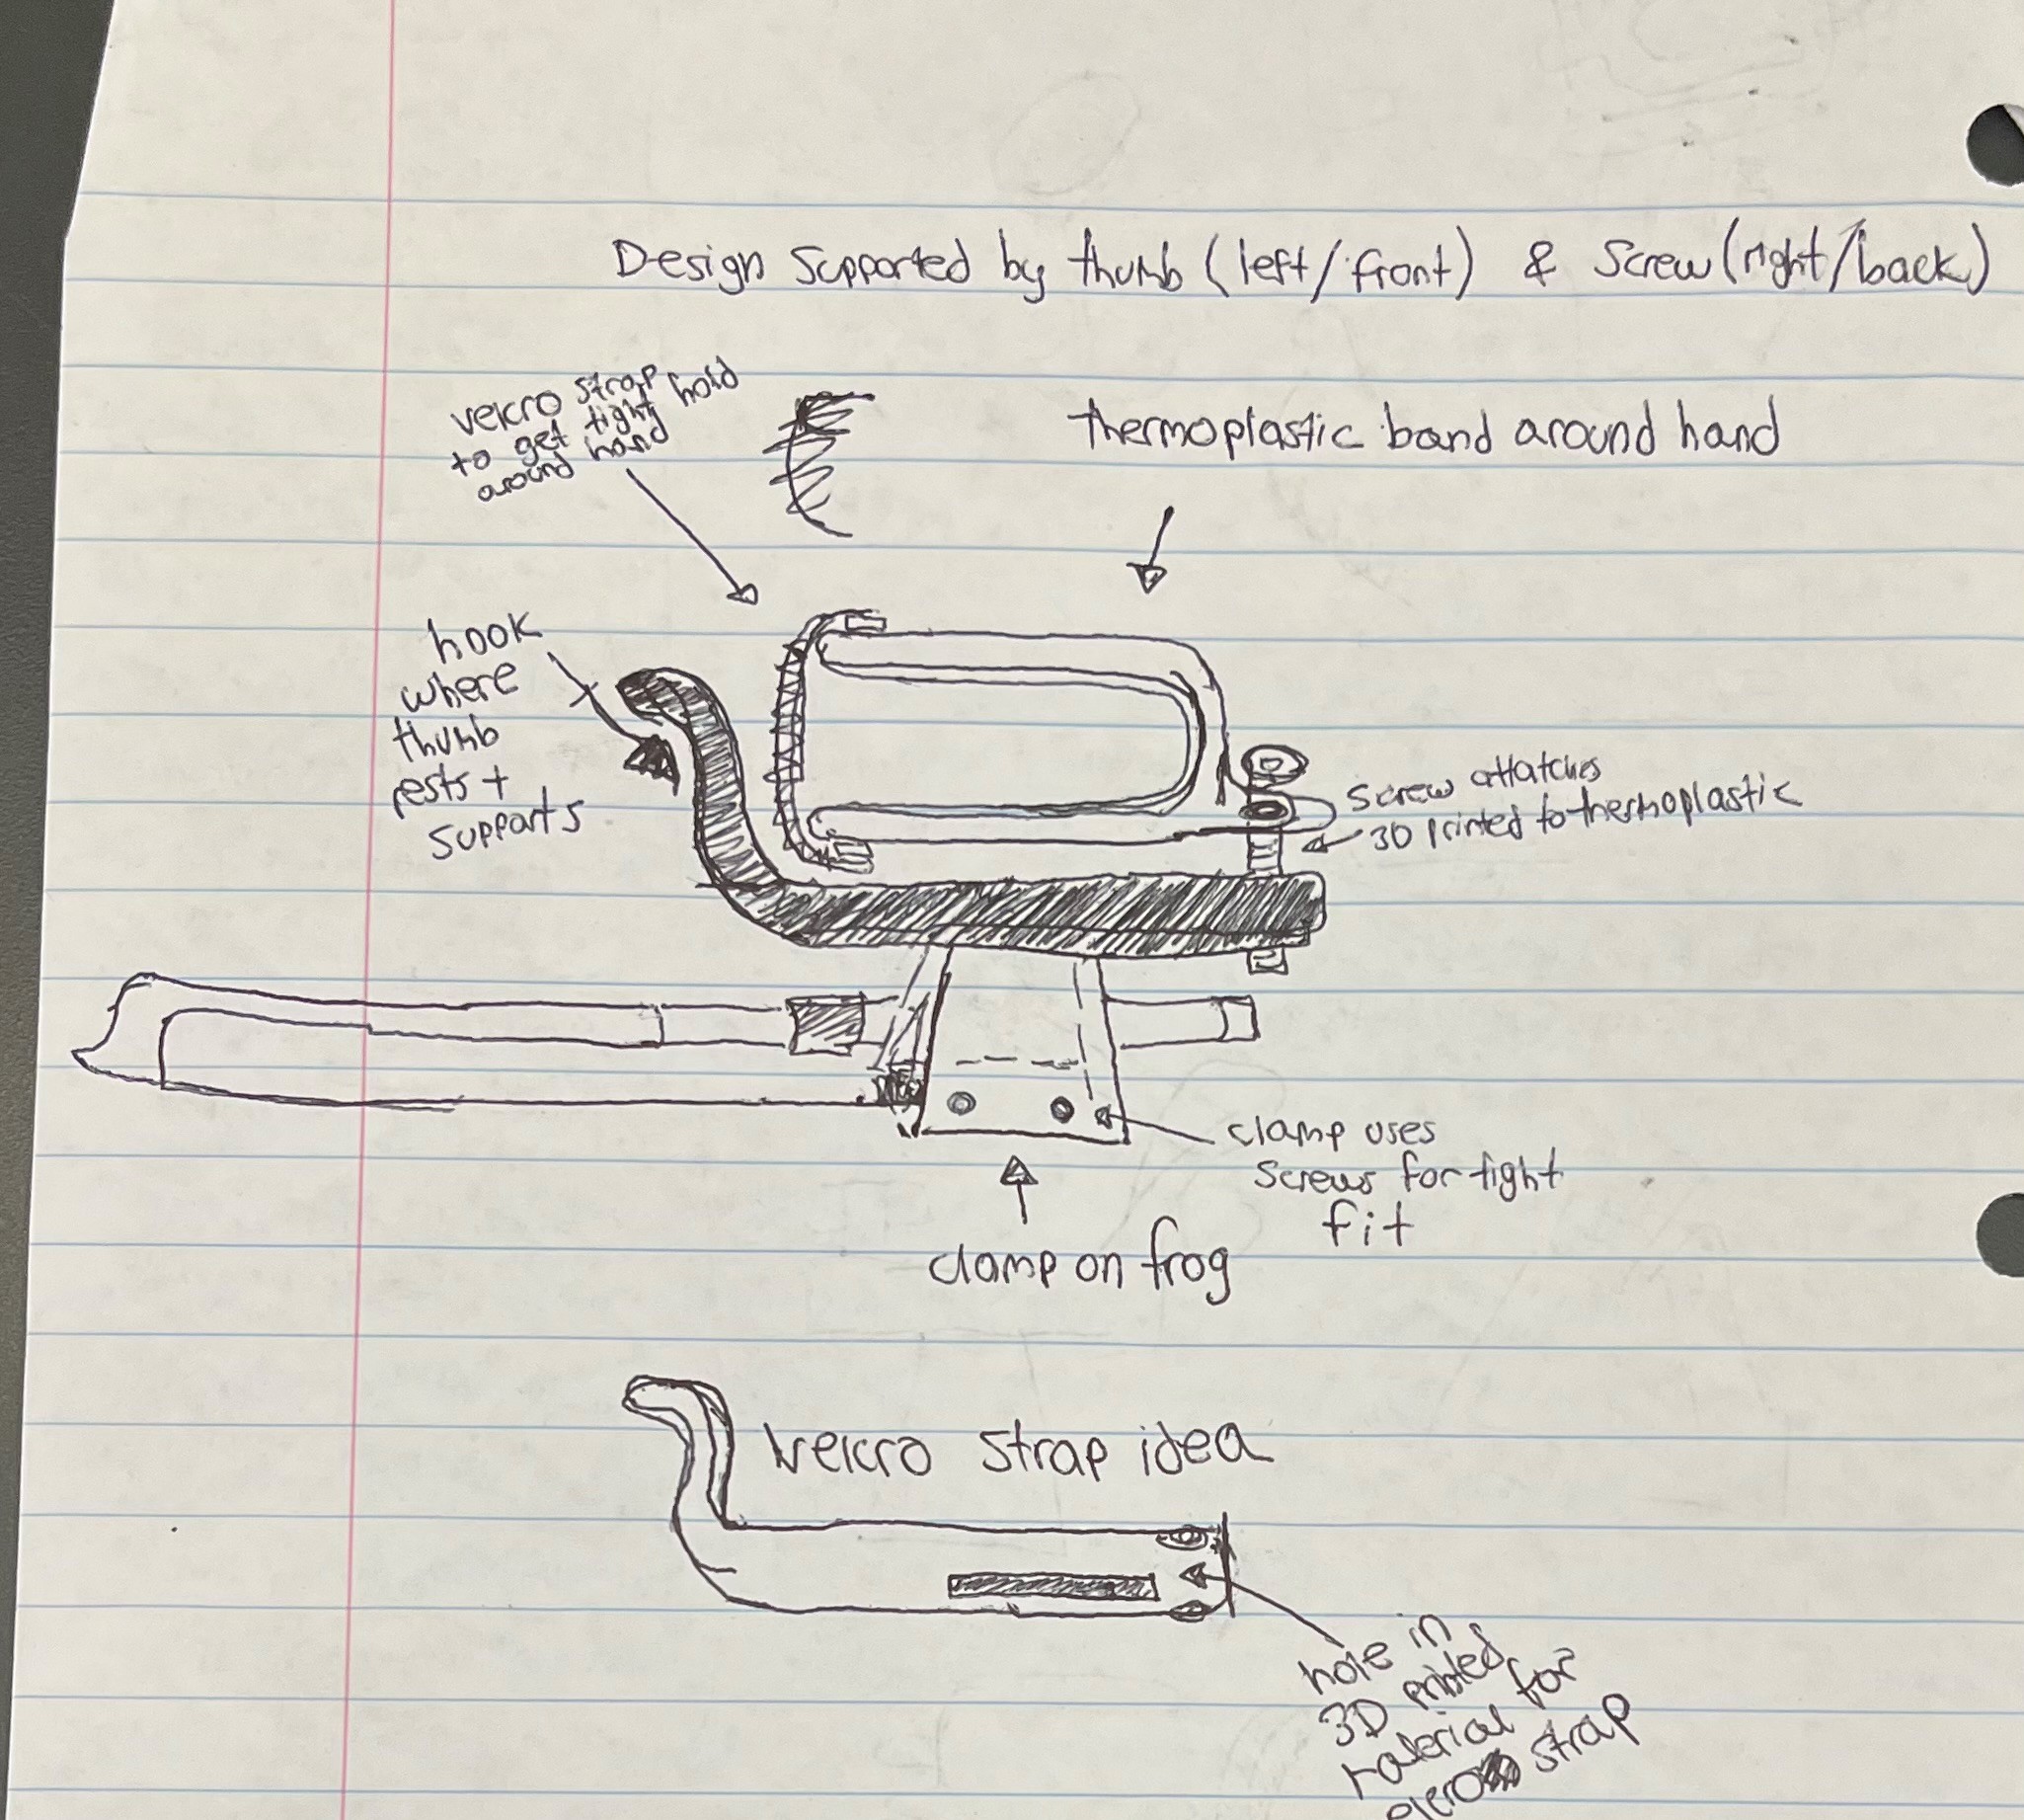 Design Supported by thumb (left/front) & Screw (right/back)
velcro strap
to get tight hold
around hand
thermoplastic band around hand
hook
where
thumb
rests +
supports
screw attatches
3D printed to thermoplastic
clamp uses
screws for tight
fit
clamp on frog
velcro strap idea
hole in
3D printed
material for
velcro strap